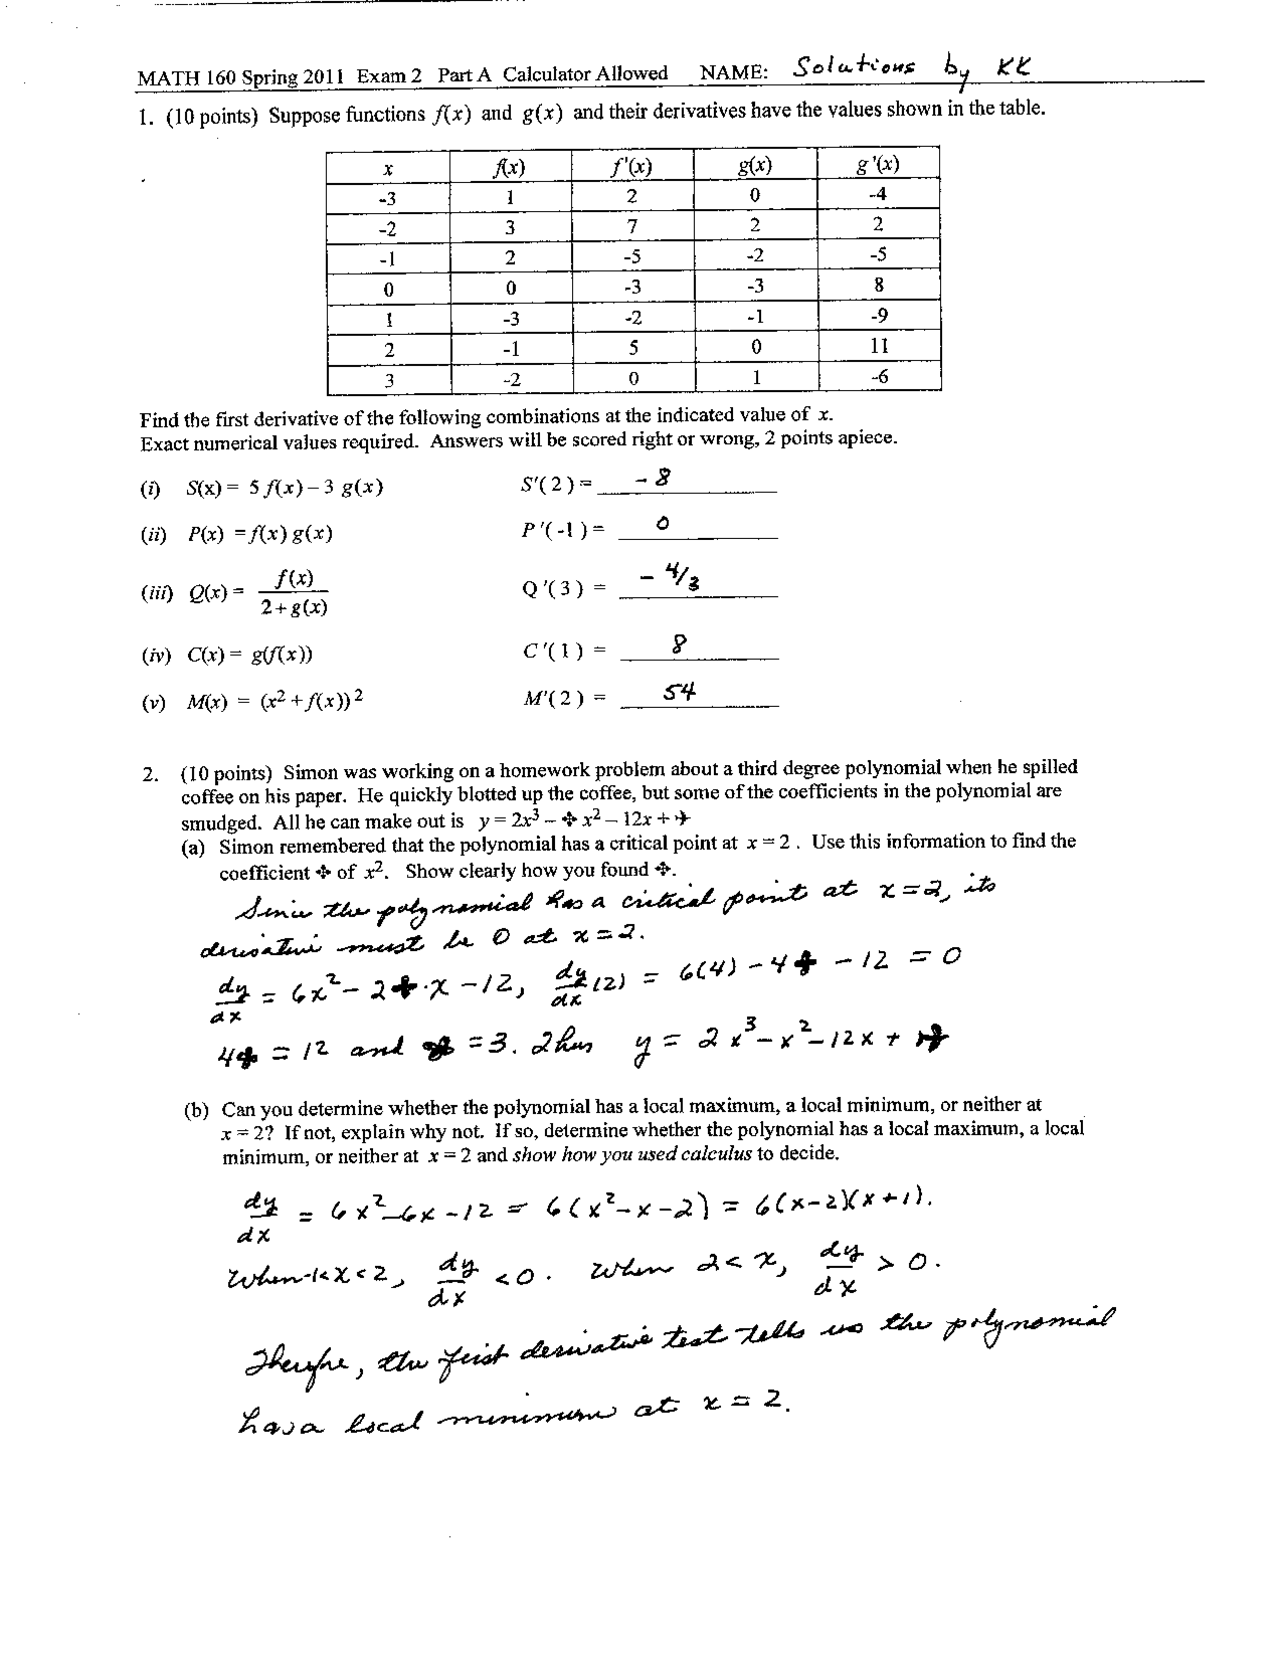 MATH 160 Spring 2011 Exam 2 Part A Calculator Allowed NAME: Solutions by KK
1. (10 points) Suppose functions f(x) and g(x) and their derivatives have the values shown in the table.
x f(x) f'(x) g(x) g'(x)
-3 1 2 0 -4
-2 3 7 2 2
-1 2 -5 -2 -5
0 0 -3 -3 8
1 -3 -2 -1 -9
2 -1 5 0 11
3 -2 0 1 -6
Find the first derivative of the following combinations at the indicated value of x.
Exact numerical values required. Answers will be scored right or wrong, 2 points apiece.
(i) S(x) = 5 f(x) – 3 g(x) S'( 2 ) = - 8
(ii) P(x) = f(x) g(x) P'( -1 ) = 0
(iii) Q(x) = f(x) / 2 + g(x) Q'( 3 ) = - 4/3
(iv) C(x) = g(f(x)) C'( 1 ) = 8
(v) M(x) = (x² + f(x))² M'( 2 ) = 54
2. (10 points) Simon was working on a homework problem about a third degree polynomial when he spilled
coffee on his paper. He quickly blotted up the coffee, but some of the coefficients in the polynomial are
smudged. All he can make out is y = 2x³ – ✤ x² – 12x + ✈
(a) Simon remembered that the polynomial has a critical point at x = 2 . Use this information to find the
coefficient ✤ of x². Show clearly how you found ✤.
Since the polynomial has a critical point at x = 2, its
derivative must be 0 at x = 2.
dy/dx = 6x² - 2✤·x - 12, dy/dx (2) = 6(4) - 4✤ - 12 = 0
4✤ = 12 and ✤ = 3. Thus y = 2x³ - x² - 12x + ✈
(b) Can you determine whether the polynomial has a local maximum, a local minimum, or neither at
x = 2? If not, explain why not. If so, determine whether the polynomial has a local maximum, a local
minimum, or neither at x = 2 and show how you used calculus to decide.
dy/dx = 6x² - 6x - 12 = 6(x² - x - 2) = 6(x - 2)(x + 1).
When -1 < x < 2, dy/dx < 0. When 2 < x, dy/dx > 0.
Therefore, the first derivative test tells us the polynomial
has a local minimum at x = 2.